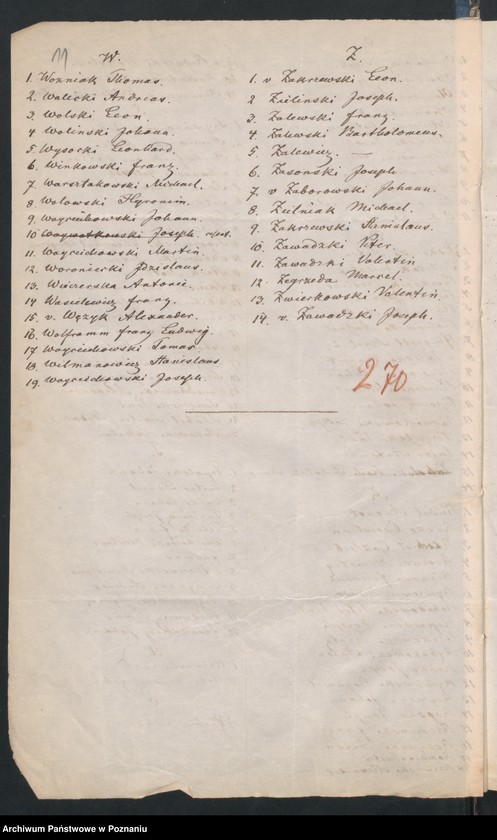 11
W.
1. Wozniak Thomas.
2. Walicki Andreas.
3. Wolski Leon.
4 Woliński Johann.
5. Wysocki Leonhard.
6. Winkowski franz.
7. Warsztakowski Michael.
8 Wolowski Hyronim.
9. Woyciechowski Johann.
10 Joseph
11. Woyciechowski Martin
12. Woroniecki Zdzislaus.
13. Wieczerska Antonie.
14 Wasielewicz franz.
15. v. Węzyk Alexander.
16. Wolframm franz Ludwig.
17 Woyciechowski Tomas
18. Wilmanowicz Stanislaus
19. Woyciechowski Joseph.
Z.
1. v Zakrzewski Leon.
2 Zieliński Joseph.
3. Zalewski franz.
4. Zalewski Bartholomeus.
5. Zalewicz. —
6. Zasonski Joseph
7. v Zaborowski Johann.
8. Zielniak Michael.
9. Zakrzewski Stanislaus.
10. Zawadzki Peter.
11. Zawadzki Valentin
12. Zegrzeda Marcel.
13. Zwierkowski Valentin
14. v. Zawadzki Joseph.
270
Archiwum Państwowe w Poznaniu